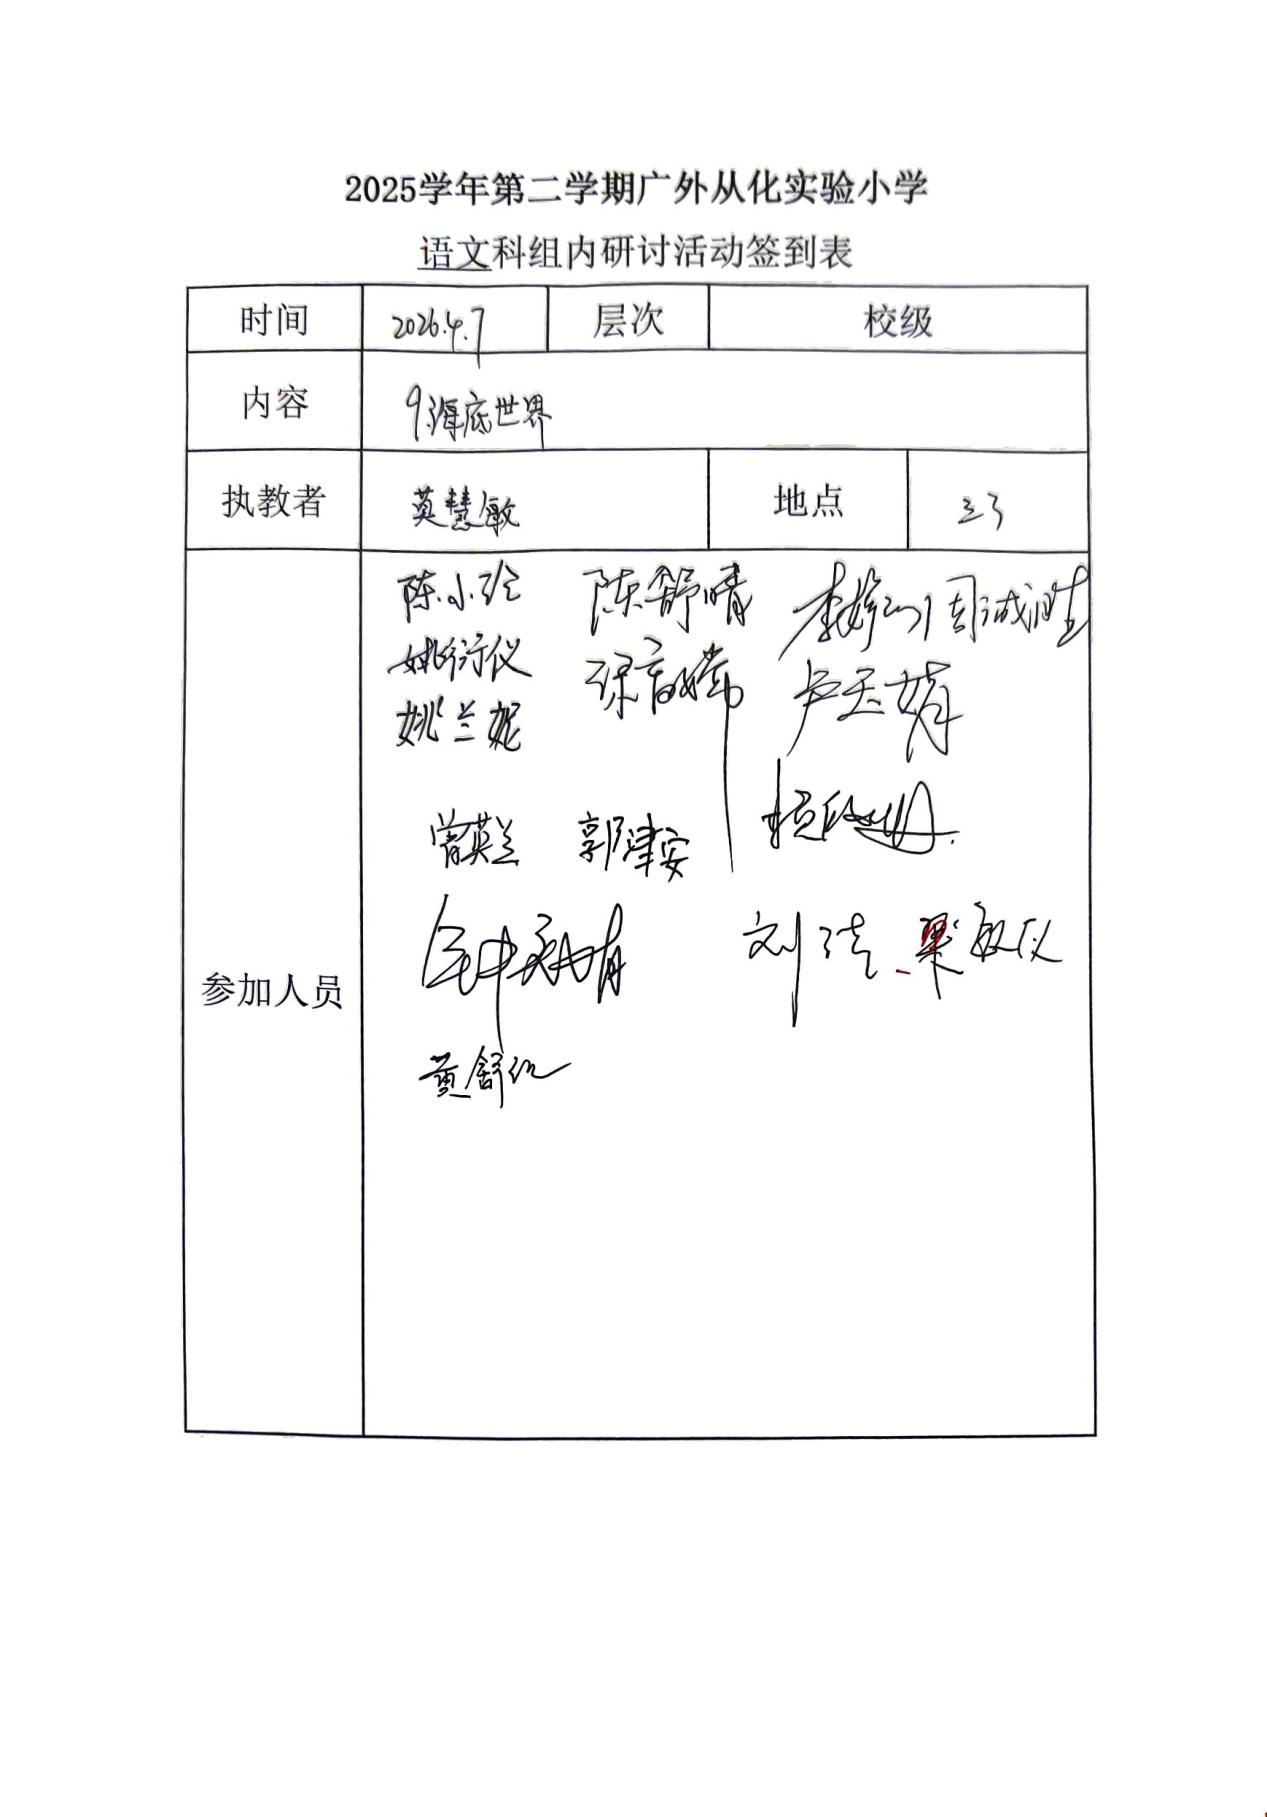 2025学年第二学期广外从化实验小学
语文科组内研讨活动签到表
时间 2026.4.7 层次 校级
内容 9.海底世界
执教者 莫慧敏 地点 三3
参加人员
陈小玲 陈舒晴 李婷 周诚胜
姚衍仪 卢玉娟
姚兰妮
曾英兰 郭津安
钟 刘 梁敏仪
黄舒红